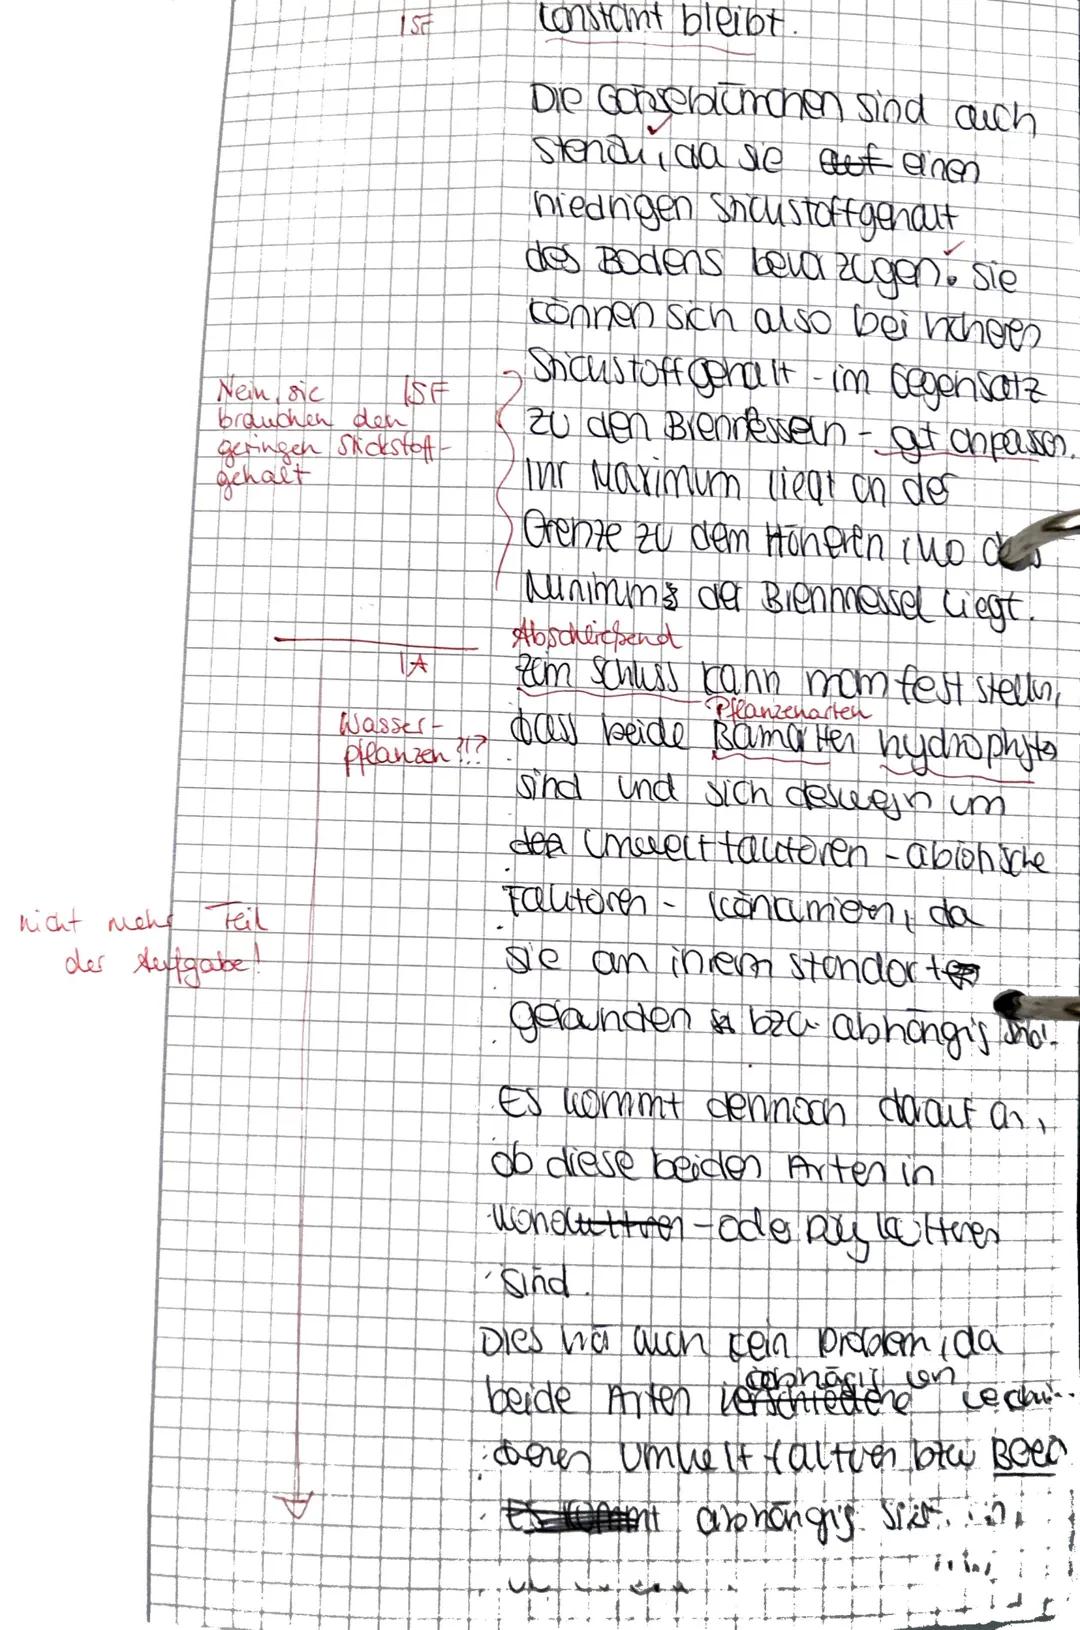 ISF
constant bleibt.
Die Gänseblümchen sind auch
stenöu, da sie auf einen
niedrigen Stickstoffgehalt
des Bodens bevorzugen. Sie
können sich also bei höheren
Nein, sie ISF Stickstoffgehalt - im Gegensatz
brauchen den zu den Brennesseln - gut anpassen.
geringen Stickstoff-
gehalt
Ihr Maximum liegt an der
Grenze zu dem Höheren, wo das
Minimum der Brennnessel liegt.
Abschließend
IA zum Schluss kann man fest stellen,
Pflanzenarten
Wasser- dass beide Bamarten hydrophyte
pflanzen?!?
sind und sich deswegn um
den Umweltfaktoren - abiotische
nicht mehr Teil Faktoren - kümmern, da
der Aufgabe! sie an ihrem standort
gebunden bzw. abhängig sind.
Es kommt dennoch darauf an,
ob diese beiden Arten in
Monokulturen - oder polykulturen
sind.
Dies wä auch kein problem, da
abhängig von
beide Arten verschiedene
Umwelt faktoren bzw
Es kommt abhängig sind.